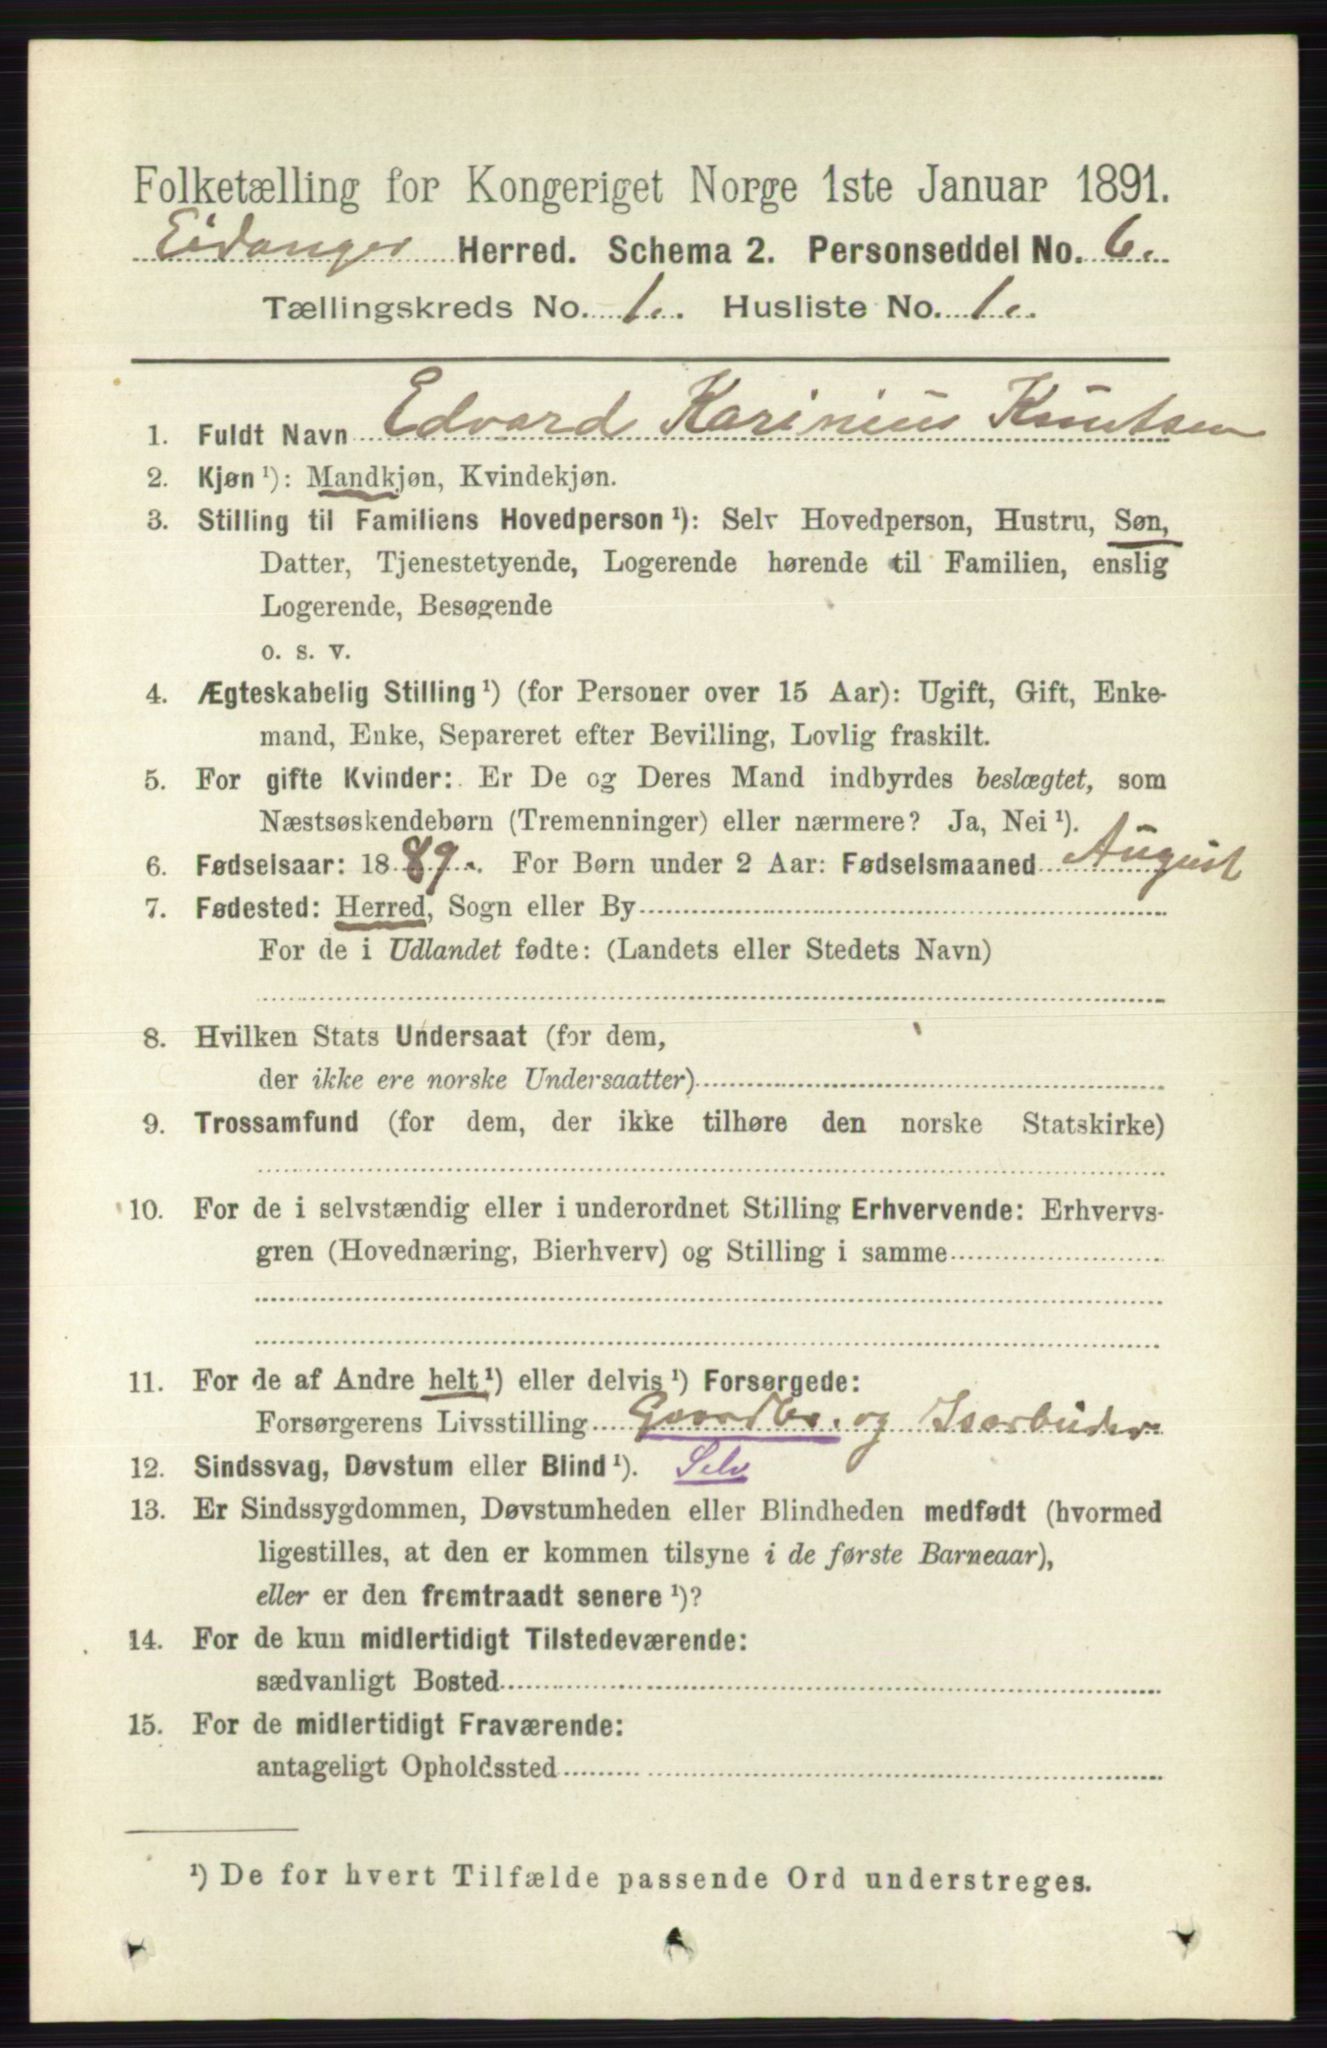 Folketælling for Kongeriget Norge 1ste Januar 1891.
Eidanger Herred. Schema 2. Personseddel No. 6.
Tællingskreds No. 1. Husliste No. 1.
1. Fuldt Navn Edvard Karinius Knutsen
2. Kjøn ¹): Mandkjøn, Kvindekjøn.
3. Stilling til Familiens Hovedperson ¹): Selv Hovedperson, Hustru, Søn,
Datter, Tjenestetyende, Logerende hørende til Familien, enslig
Logerende, Besøgende
o. s. v.
4. Ægteskabelig Stilling ¹) (for Personer over 15 Aar): Ugift, Gift, Enke-
mand, Enke, Separeret efter Bevilling, Lovlig fraskilt.
5. For gifte Kvinder: Er De og Deres Mand indbyrdes beslægtet, som
Næstsøskendebørn (Tremenninger) eller nærmere? Ja, Nei ¹).
6. Fødselsaar: 1889. For Børn under 2 Aar: Fødselsmaaned August
7. Fødested: Herred, Sogn eller By
For de i Udlandet fødte: (Landets eller Stedets Navn)
8. Hvilken Stats Undersaat (for dem,
der ikke ere norske Undersaatter)
9. Trossamfund (for dem, der ikke tilhøre den norske Statskirke)
10. For de i selvstændig eller i underordnet Stilling Erhvervende: Erhvervs-
gren (Hovednæring, Bierhverv) og Stilling i samme
11. For de af Andre helt ¹) eller delvis ¹) Forsørgede:
Forsørgerens Livsstilling Gaardbr. og Isarbeider
12. Sindssvag, Døvstum eller Blind ¹). Selv
13. Er Sindssygdommen, Døvstumheden eller Blindheden medfødt (hvormed
ligestilles, at den er kommen tilsyne i de første Barneaar),
eller er den fremtraadt senere ¹)?
14. For de kun midlertidigt Tilstedeværende:
sædvanligt Bosted
15. For de midlertidigt Fraværende:
antageligt Opholdssted
¹) De for hvert Tilfælde passende Ord understreges.